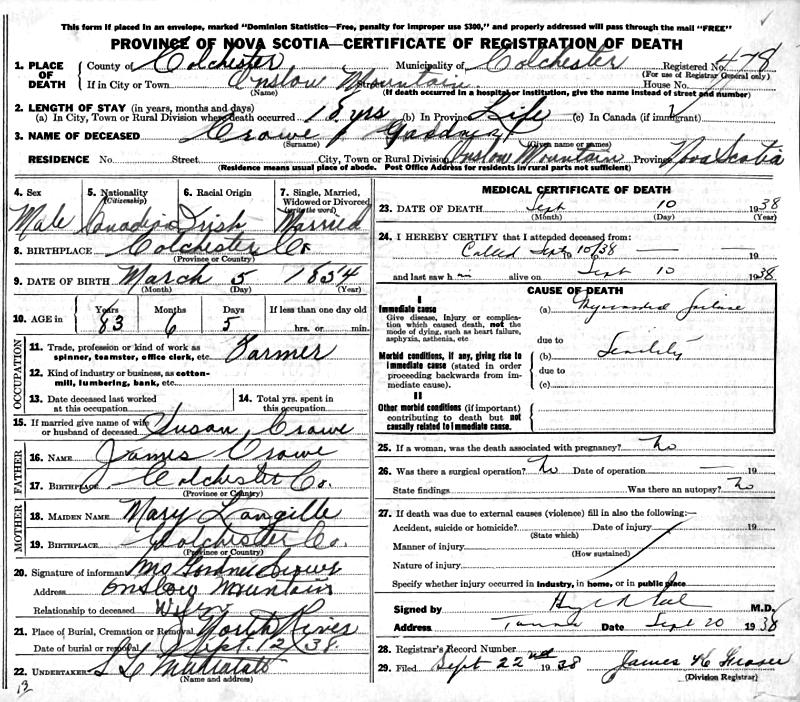 This form if placed in an envelope, marked "Dominion Statistics—Free, penalty for improper use $300," and properly addressed will pass through the mail "FREE"
PROVINCE OF NOVA SCOTIA—CERTIFICATE OF REGISTRATION OF DEATH
1. PLACE OF DEATH
County of Colchester Municipality of Colchester Registered No. 478
(For use of Registrar General only)
If in City or Town Onslow Mountain Street House No.
(Name) (If death occurred in a hospital or institution, give the name instead of street and number)
2. LENGTH OF STAY (in years, months and days)
(a) In City, Town or Rural Division where death occurred 18 yrs (b) In Province Life (c) In Canada (if immigrant)
3. NAME OF DECEASED Crowe Gardner
(Surname) (Given name or names)
RESIDENCE No. Street City, Town or Rural Division Onslow Mountain Province Nova Scotia
(Residence means usual place of abode. Post Office Address for residents in rural parts not sufficient)
4. Sex 5. Nationality (Citizenship) 6. Racial Origin 7. Single, Married, Widowed or Divorced (write the word)
Male Canadian Irish Married
8. BIRTHPLACE Colchester Co
(Province or Country)
9. DATE OF BIRTH March 5 1854
(Month) (Day) (Year)
10. AGE in Years Months Days If less than one day old
83 6 5 hrs. or min.
OCCUPATION
11. Trade, profession or kind of work as spinner, teamster, office clerk, etc. Farmer
12. Kind of industry or business, as cotton-mill, lumbering, bank, etc.
13. Date deceased last worked at this occupation
14. Total yrs. spent in this occupation
15. If married give name of wife or husband of deceased Susan Crowe
FATHER
16. NAME James Crowe
17. BIRTHPLACE Colchester Co.
(Province or Country)
MOTHER
18. MAIDEN NAME Mary Langille
19. BIRTHPLACE Colchester Co.
(Province or Country)
20. Signature of informant Mrs Gardner Crowe
Address Onslow Mountain
Relationship to deceased
21. Place of Burial, Cremation or Removal North River
Date of burial or removal Sept. 12 38.
22. UNDERTAKER
(Name and address)
MEDICAL CERTIFICATE OF DEATH
23. DATE OF DEATH Sept 10 1938
(Month) (Day) (Year)
24. I HEREBY CERTIFY that I attended deceased from:
Called Sept 10/38 — — 19
to
and last saw h im alive on Sept 10 1938.
CAUSE OF DEATH
I
Immediate cause
Give disease, injury or complication which caused death, not the mode of dying, such as heart failure, asphyxia, asthenia, etc
(a) Myocardial failure
due to
Morbid conditions, if any, giving rise to immediate cause (stated in order proceeding backwards from immediate cause).
(b) Senility
due to
(c)
II
Other morbid conditions (if important) contributing to death but not causally related to immediate cause.
25. If a woman, was the death associated with pregnancy? No
26. Was there a surgical operation? No Date of operation — 19
State findings Was there an autopsy? No
27. If death was due to external causes (violence) fill in also the following:—
Accident, suicide or homicide? Date of injury 19
(State which)
Manner of injury
(How sustained)
Nature of injury
Specify whether injury occurred in industry, in home, or in public place
Signed by M.D.
Address Date Sept 20 1938
28. Registrar's Record Number
29. Filed Sept 22nd 1938 James K Fraser
(Division Registrar)